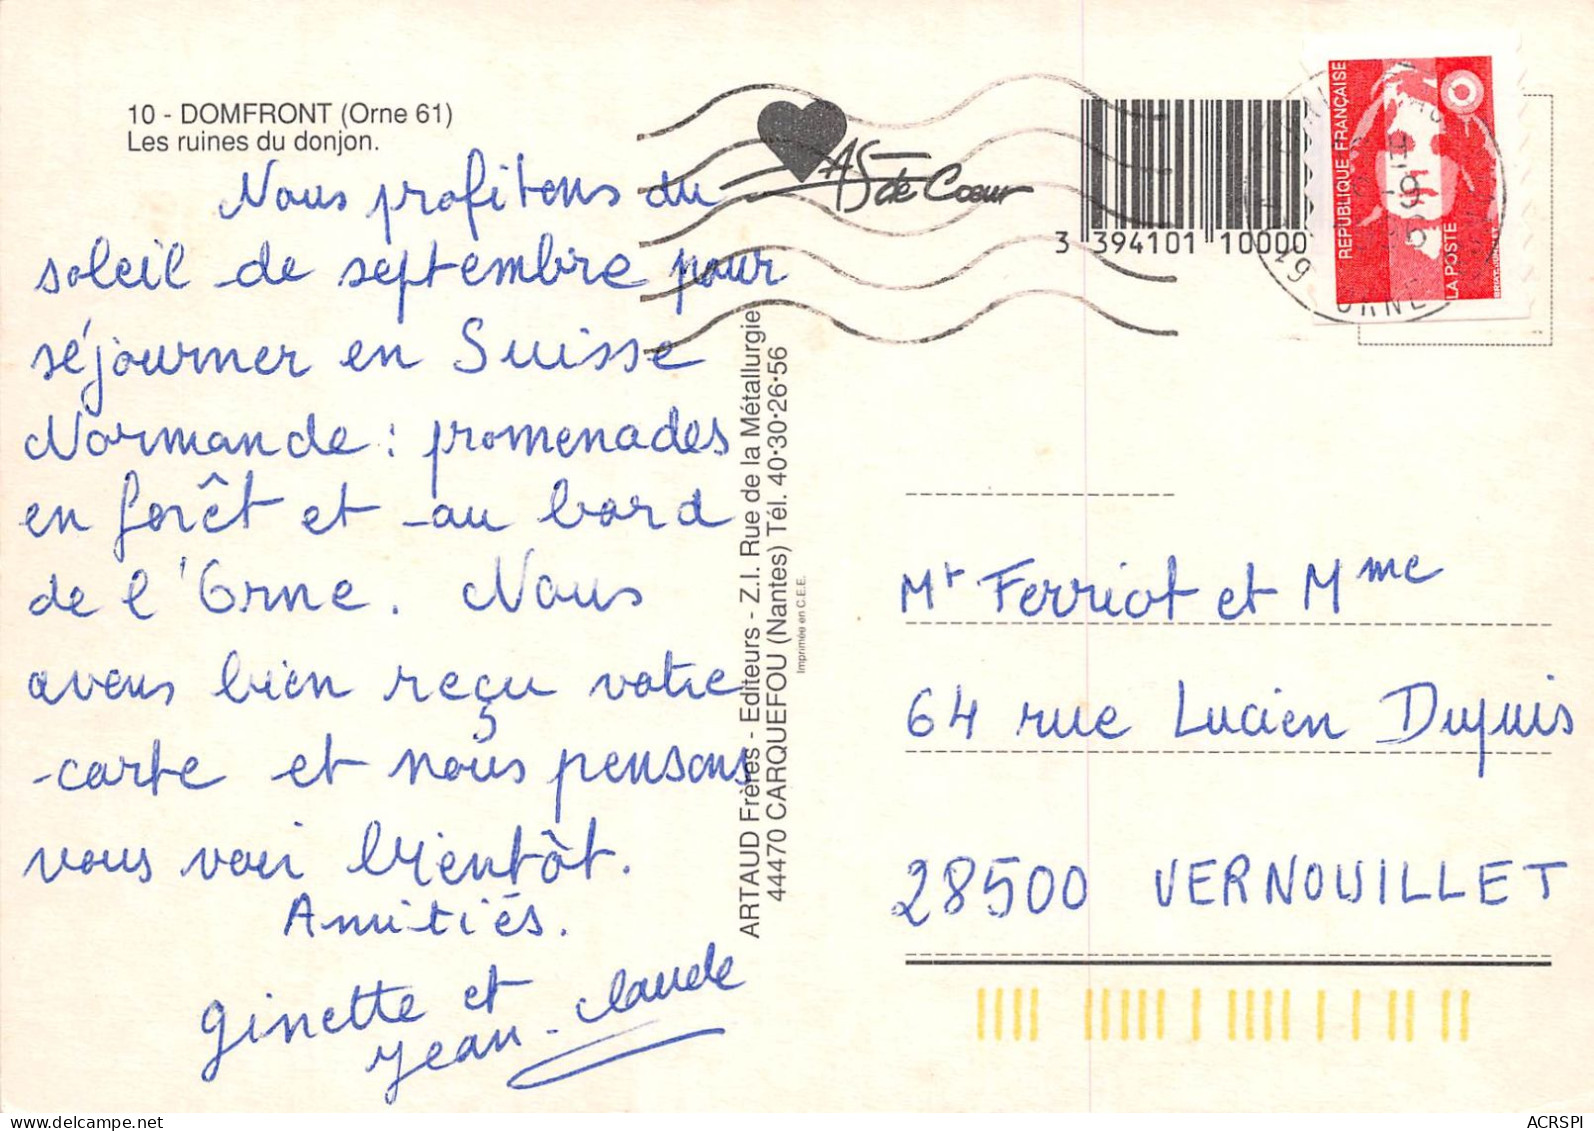 10 - DOMFRONT (Orne 61)
Les ruines du donjon.
Nous profitons du
soleil de septembre pour
séjourner en Suisse
Normande : promenades
en forêt et au bord
de l'Orne. Nous
avons bien reçu votre
carte et nous pensons
vous voir bientôt.
Amitiés.
Ginette et
Jean-Claude
AS de Coeur
3 394101 10000
ARTAUD Frères - Editeurs - Z.I. Rue de la Métallurgie
44470 CARQUEFOU (Nantes) Tél. 40·30·26·56
Imprimée en C.E.E.
REPUBLIQUE FRANÇAISE
LA POSTE
ORNE
Mr Ferriot et Mme
64 rue Lucien Dupuis
28500 VERNOUILLET
ACRSPI